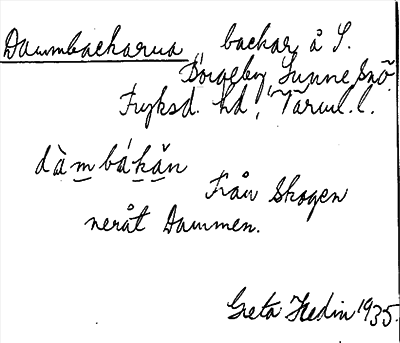 Dammbackarna, backar å S.
Borgeby, Sunne sn
Fryksd. hd, Värml. l.
dàmbákăn
Från Skogen
neråt Dammen.
Greta Hedin 1935.